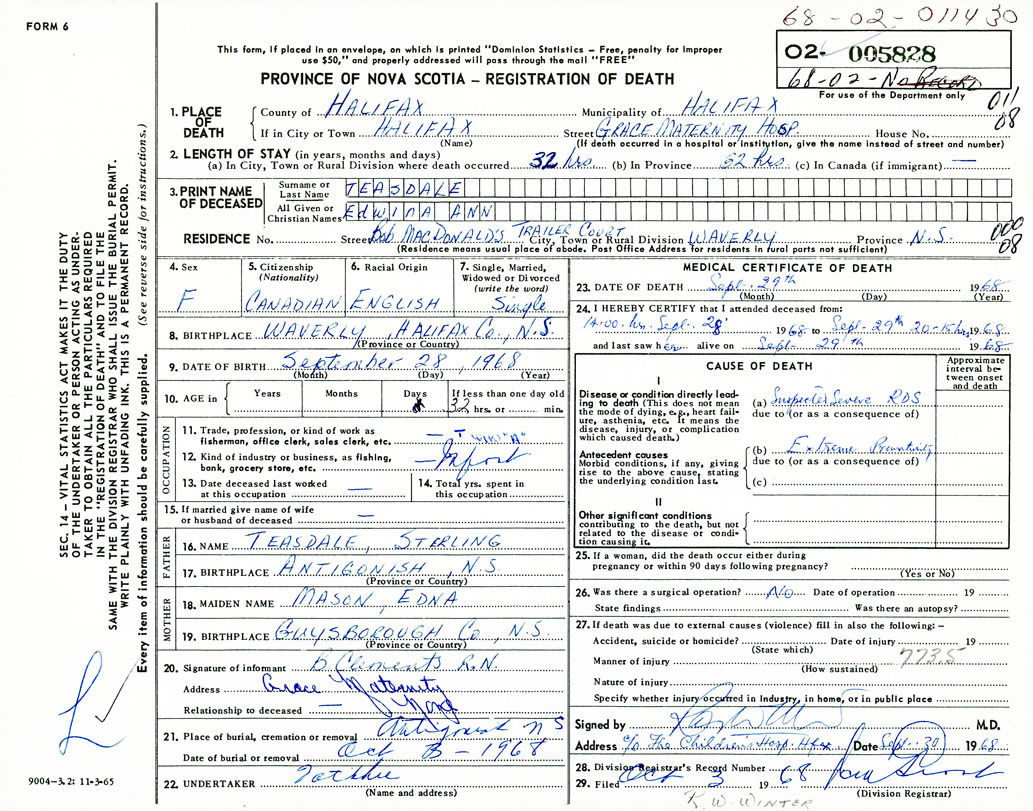 FORM 6
68-02-011430
02- 005828
68-02-No Record
For use of the Department only
This form, if placed in an envelope, on which is printed "Dominion Statistics – Free, penalty for improper
use $50," and properly addressed will pass through the mail "FREE"
PROVINCE OF NOVA SCOTIA – REGISTRATION OF DEATH
011
08
1. PLACE OF DEATH
County of HALIFAX Municipality of HALIFAX
If in City or Town HALIFAX Street GRACE MATERNITY HOSP. House No.
(Name) (If death occurred in a hospital or institution, give the name instead of street and number)
2. LENGTH OF STAY (in years, months and days)
(a) In City, Town or Rural Division where death occurred 32 hrs (b) In Province 32 hrs (c) In Canada (if immigrant) —
3. PRINT NAME OF DECEASED
Surname or Last Name TEASDALE
All Given or Christian Names EDWINA ANN
000
08
RESIDENCE No. Street Bob MacDonald's Trailer Court City, Town or Rural Division WAVERLY Province N.S.
(Residence means usual place of abode. Post Office Address for residents in rural parts not sufficient)
4. Sex F
5. Citizenship (Nationality) CANADIAN
6. Racial Origin ENGLISH
7. Single, Married, Widowed or Divorced (write the word) Single
8. BIRTHPLACE WAVERLY, HALIFAX Co., N.S.
(Province or Country)
9. DATE OF BIRTH September 28, 1968
(Month) (Day) (Year)
10. AGE in Years Months Days If less than one day 32 hrs. or min.
OCCUPATION
11. Trade, profession, or kind of work as fisherman, office clerk, sales clerk, etc. — Twin "A"
12. Kind of industry or business, as fishing, bank, grocery store, etc. — Infant
13. Date deceased last worked at this occupation —
14. Total yrs. spent in this occupation
15. If married give name of wife or husband of deceased —
FATHER
16. NAME TEASDALE, STERLING
17. BIRTHPLACE ANTIGONISH, N.S.
(Province or Country)
MOTHER
18. MAIDEN NAME MASON, EDNA
19. BIRTHPLACE GUYSBOROUGH Co, N.S.
(Province or Country)
20. Signature of informant B. Clements R.N.
Address Grace Maternity
Relationship to deceased —
21. Place of burial, cremation or removal Antigonish NS
Date of burial or removal Oct 3 - 1968
22. UNDERTAKER
(Name and address)
MEDICAL CERTIFICATE OF DEATH
23. DATE OF DEATH Sept. 29th 1968
(Month) (Day) (Year)
24. I HEREBY CERTIFY that I attended deceased from:
14:00 hrs. Sept. 28 1968 to Sept. 29th 20-15hrs 1968
and last saw her alive on Sept. 29th 1968
CAUSE OF DEATH
Approximate interval between onset and death
I
Disease or condition directly leading to death (This does not mean the mode of dying, e.g., heart failure, asthenia, etc. It means the disease, injury, or complication which caused death.)
(a) Severe RDS
due to (or as a consequence of)
Antecedent causes
Morbid conditions, if any, giving rise to the above cause, stating the underlying condition last.
(b) Extreme Prematurity
due to (or as a consequence of)
(c)
II
Other significant conditions contributing to the death, but not related to the disease or condition causing it.
25. If a woman, did the death occur either during pregnancy or within 90 days following pregnancy?
(Yes or No)
26. Was there a surgical operation? No Date of operation 19
State findings Was there an autopsy?
27. If death was due to external causes (violence) fill in also the following: –
Accident, suicide or homicide? Date of injury 19
(State which)
773.5
Manner of injury
(How sustained)
Nature of injury
Specify whether injury occurred in Industry, in home, or in public place
Signed by M.D.
Address c/o The Childrens Hosp. Hfx Date Sept. 30 1968
28. Division Registrar's Record Number
29. Filed Oct 3 1968
(Division Registrar)
K. W. WINTER
SEC. 14 – VITAL STATISTICS ACT MAKES IT THE DUTY
OF THE UNDERTAKER OR PERSON ACTING AS UNDER-
TAKER TO OBTAIN ALL THE PARTICULARS REQUIRED
IN THE "REGISTRATION OF DEATH" AND TO FILE THE
SAME WITH THE DIVISION REGISTRAR WHO SHALL ISSUE THE BURIAL PERMIT.
WRITE PLAINLY WITH UNFADING INK. THIS IS A PERMANENT RECORD.
Every item of information should be carefully supplied. (See reverse side for instructions.)
9004-3.2: 11-3-65